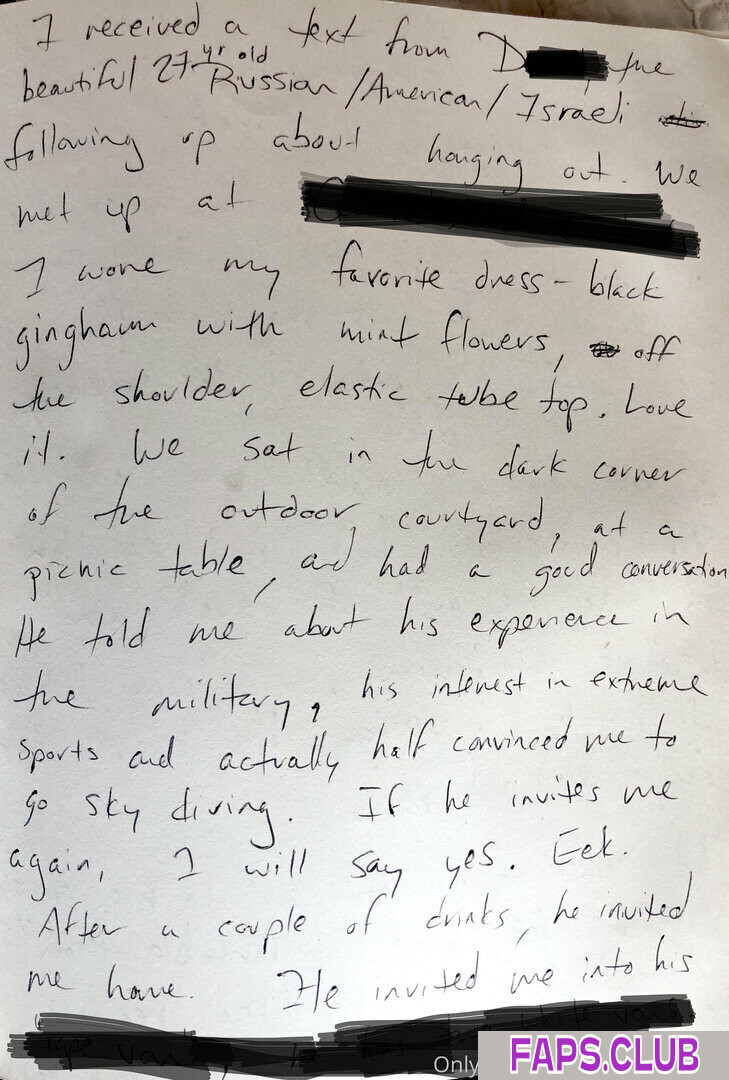 I received a text from D , the
beautiful 27 yr old Russian/American/Israeli
following up about hanging out. We
met up at
I wore my favorite dress - black
gingham with mint flowers, off
the shoulder, elastic tube top. Love
it. We sat in the dark corner
of the outdoor courtyard, at a
picnic table, and had a good conversation
He told me about his experience in
the military, his interest in extreme
sports and actually half convinced me to
go sky diving. If he invites me
again, I will say yes. Eek.
After a couple of drinks, he invited
me home. He invited me into his
Only
FAPS.CLUB